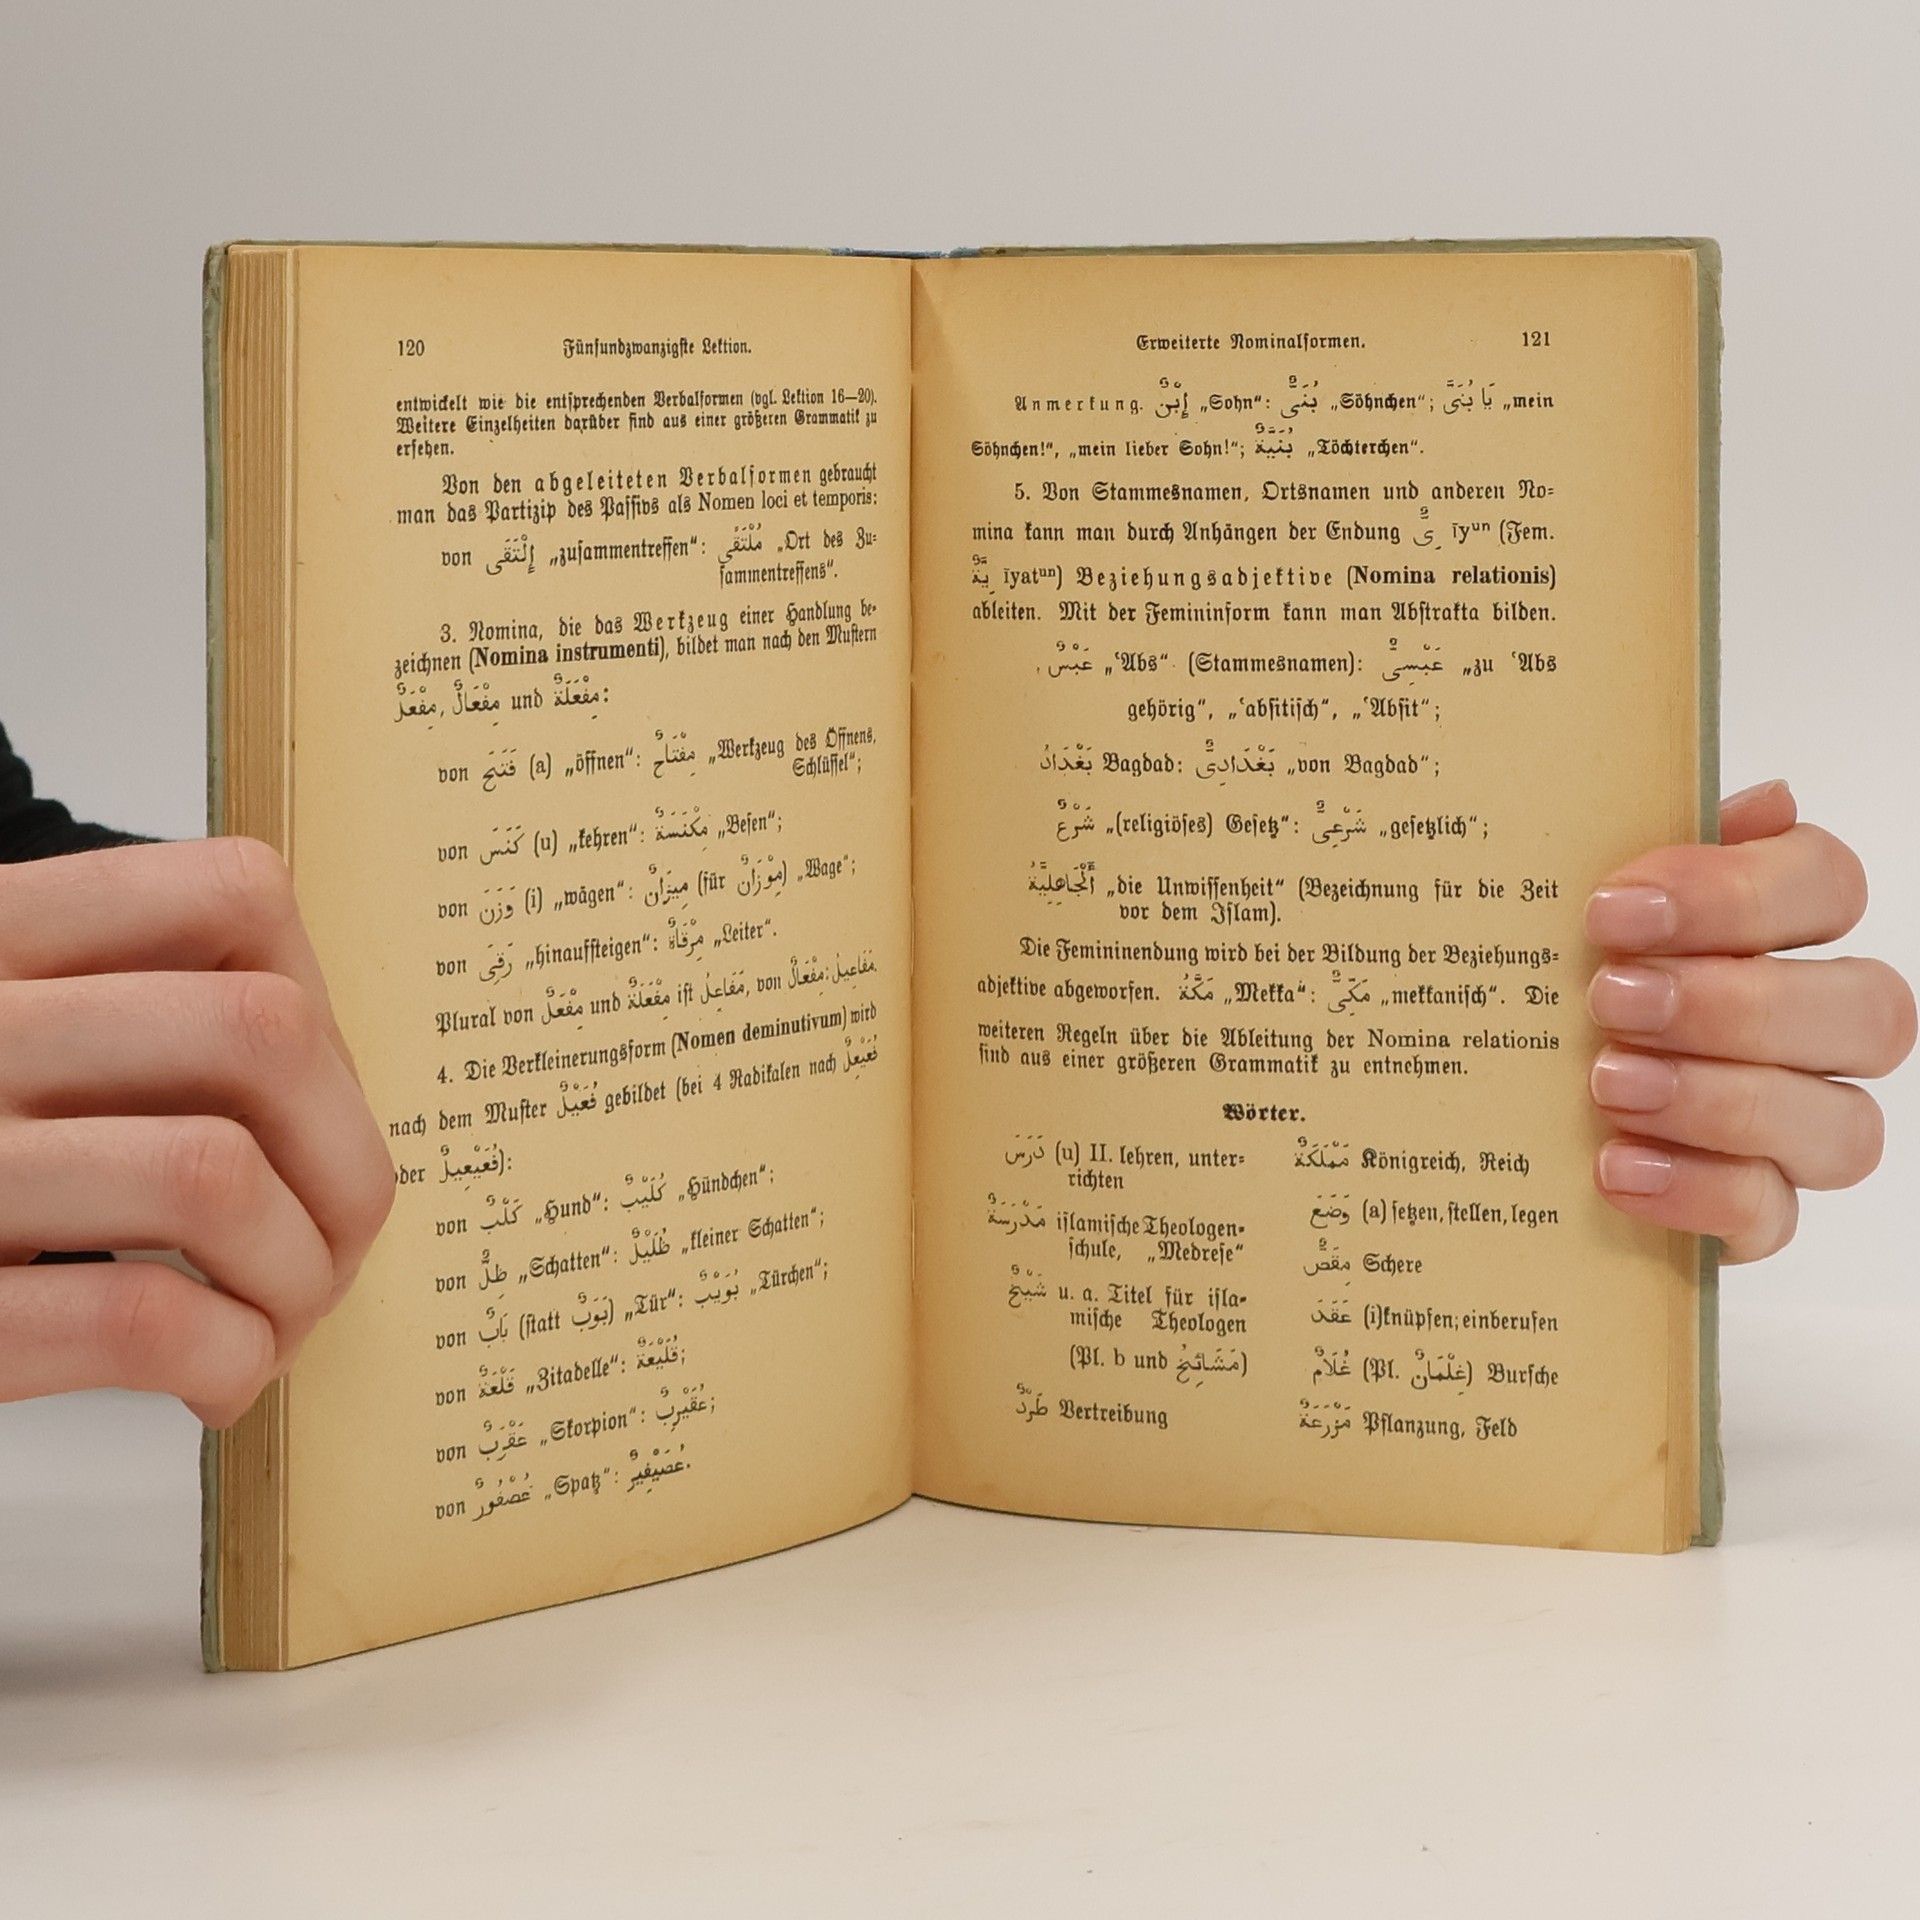 120
Fünfundzwanzigste Lektion.
entwickelt wie die entsprechenden Verbalformen (vgl. Lektion 16—20).
Weitere Einzelheiten darüber sind aus einer größeren Grammatik zu
ersehen.
Von den abgeleiteten Verbalformen gebraucht
man das Partizip des Passivs als Nomen loci et temporis:
von إِلْتَقَى „zusammentreffen“: مُلْتَقًى „Ort des Zu=
sammentreffens“.
3. Nomina, die das Werkzeug einer Handlung be=
zeichnen (Nomina instrumenti), bildet man nach den Mustern
مِفْعَلٌ, مِفْعَالٌ und مِفْعَلَةٌ:
von فَتَحَ (a) „öffnen“: مِفْتَاحٌ „Werkzeug des Öffnens,
Schlüssel“;
von كَنَسَ (u) „kehren“: مِكْنَسَةٌ „Besen“;
von وَزَنَ (i) „wägen“: مِيزَانٌ (für مِوْزَانٌ) „Wage“;
von رَقِىَ „hinaufsteigen“: مِرْقَاةٌ „Leiter“.
Plural von مِفْعَلٌ und مِفْعَلَةٌ ist مَفَاعِلُ, von مِفْعَالٌ: مَفَاعِيلُ.
4. Die Verkleinerungsform (Nomen deminutivum) wird
nach dem Muster فُعَيْلٌ gebildet (bei 4 Radikalen nach فُعَيْعِلٌ
oder فُعَيْعِيلٌ):
von كَلْبٌ „Hund“: كُلَيْبٌ „Hündchen“;
von ظِلٌّ „Schatten“: ظُلَيْلٌ „kleiner Schatten“;
von بَابٌ (statt بَوَبٌ) „Tür“: بُوَيْبٌ „Türchen“;
von قَلْعَةٌ „Zitadelle“: قُلَيْعَةٌ;
von عَقْرَبٌ „Skorpion“: عُقَيْرِبٌ;
von عُصْفُورٌ „Spatz“: عُصَيْفِيرٌ.
Erweiterte Nominalformen.
121
Anmerkung. إِبْنٌ „Sohn“: بُنَىٌّ „Söhnchen“; يَا بُنَىَّ „mein
Söhnchen!“, „mein lieber Sohn!“; بُنَيَّةٌ „Töchterchen“.
5. Von Stammesnamen, Ortsnamen und anderen No=
mina kann man durch Anhängen der Endung ـِىٌّ īyᵘⁿ (Fem.
ـِيَّةٌ īyatᵘⁿ) Beziehungsadjektive (Nomina relationis)
ableiten. Mit der Femininform kann man Abstrakta bilden.
عَبْسٌ „ʿAbs“ (Stammesnamen): عَبْسِىٌّ „zu ʿAbs
gehörig“, „ʿabsitisch“, „ʿAbsit“;
بَغْدَادُ Bagdad: بَغْدَادِىٌّ „von Bagdad“;
شَرْعٌ „(religiöses) Gesetz“: شَرْعِىٌّ „gesetzlich“;
أَلْجَاهِلِيَّةُ „die Unwissenheit“ (Bezeichnung für die Zeit
vor dem Islam).
Die Femininendung wird bei der Bildung der Beziehungs=
adjektive abgeworfen. مَكَّةُ „Mekka“: مَكِّىٌّ „mekkanisch“. Die
weiteren Regeln über die Ableitung der Nomina relationis
sind aus einer größeren Grammatik zu entnehmen.
Wörter.
دَرَسَ (u) II. lehren, unter=
richten
مَدْرَسَةٌ islamische Theologen=
schule, „Medrese“
شَيْخٌ u. a. Titel für isla=
mische Theologen
(Pl. b und مَشَائِخُ)
طَرْدٌ Vertreibung
مَمْلَكَةٌ Königreich, Reich
وَضَعَ (a) setzen, stellen, legen
مِقَصٌّ Schere
عَقَدَ (i) knüpfen; einberufen
غُلَامٌ (Pl. غِلْمَانٌ) Bursche
مَزْرَعَةٌ Pflanzung, Feld